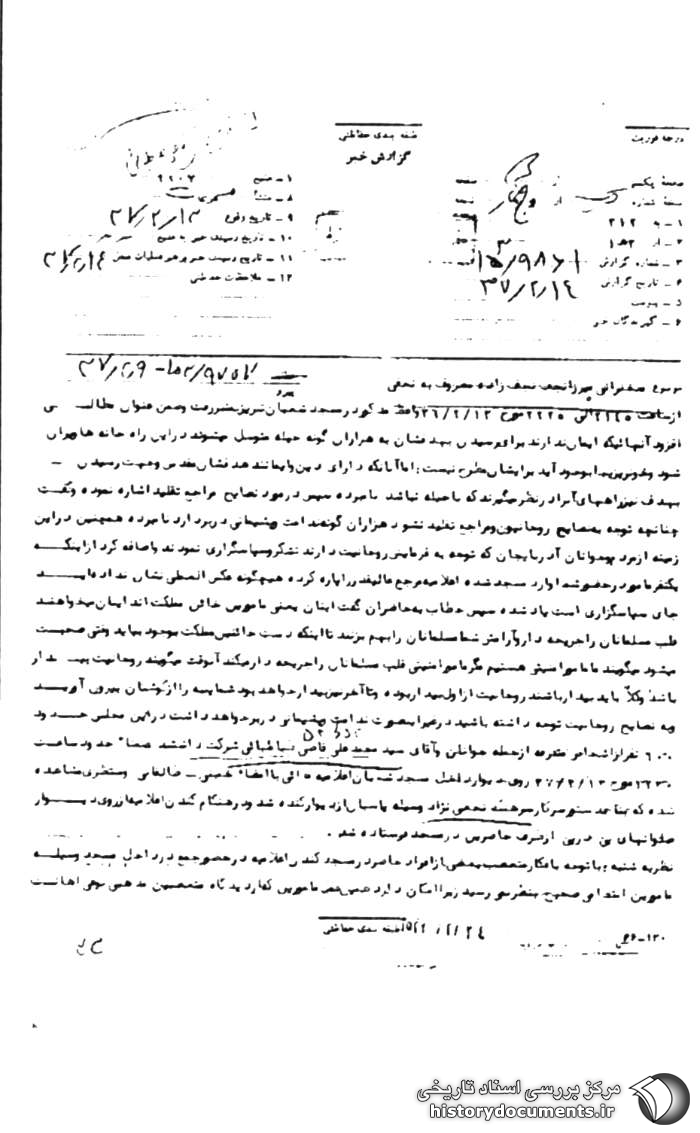 درجه فوریت
طبقه بندی حفاظتی
گزارش خبر
۱ـ به ۳۱۲
۲ـ از
۳ـ شماره گزارش ۱۵/۹۸۶۱
۴ـ تاریخ گزارش ۳۷/۲/۱۴
۵ـ پیوست
۶ـ گیرندگان خبر
۷ـ منبع ۲۲۰۷
۸ـ منشأ
۹ـ تاریخ وقوع ۳۷/۲/۱۳
۱۰ـ تاریخ رسیدن خبر به منبع
۱۱ـ تاریخ رسیدن خبر به رهبر عملیات محل ۳۷/۲/۱۴
۱۲ـ ملاحظات حفاظتی
موضوع سخنرانی میرزانجف نجف زاده معروف به نجفی
از ساعت ۲۱۴۵ الی ۲۲۴۵ مورخ ۳۶/۲/۱۳ واعظ مذکور در مسجد شعبان تبریز بمنبر رفت وضمن عنوان مطالبی
افزود آنهائیکه ایمان ندارند برای رسیدن بهدفشان به هزاران گونه حیله متوسل میشوند در این راه خانه ها ویران
شود وخونریزیها بوجود آید برایشان مطرح نیست : اما آنانکه دارای دین وایمانند هدفشان مقدس وجهت رسیدن ـ
بهدف نیز راههای را در نظر میگیرند که با حیله نباشد نامبرده سپس در مورد نصایح مراجع تقلید اشاره نموده وگفت
چنانچه توجه به نصایح روحانیون ومراجع تقلید نشود هزاران گونه ندامت وپشیمانی در بر دارد نامبرده همچنین در این
زمینه از مردم وجوانان آذربایجان که توجه به فرمایش روحانیت دارند تشکر وسپاسگزاری نمودند واضافه کرد از اینکه
یکنفر مامور در حضور شما وارد مسجد شده اعلامیه مرجع عالیقدر را پاره کرده هیچگونه عکس العملی نشان نداده اید
جای سپاسگزاری است یاد شده سپس خطاب به حاضران گفت اینان یعنی مامورین خائن مملکت اند ایشان میخواهند
قلب مسلمانان را جریحه دار وآرامش شما مسلمانان را بهم بزنند تا اینکه دست خائنین مملکت بوجود بیاید وقتی صحبت
میشود میگویند ما مامور امنیتی هستیم مگر مامور امنیتی قلب مسلمانان را جریحه دار میکند آنوقت میگویند روحانیت بیدار
باشد وکلا باید بیدار باشند روحانیت از اول بیدار بوده وتا آخر نیز بیدار خواهد بود شما پنبه را از گوشتان بیرون آورید
وبه نصایح روحانیت توجه داشته باشید در غیر اینصورت ندامت وپشیمانی در بر خواهد داشت در این مجلس حدود
۶۰۰ نفر از اشخاص متفرقه از جمله جوانان وآقای سید محمدعلی قاضی طباطبائی شرکت داشتند ضمنا" حدود ساعت
۱۶۳۰ مورخ ۳۶/۲/۱۳ روی دیوار داخل مسجد شعبان اعلامیه هائی با امضاء خمینی ـ طالقانی ومنتظری مشاهده
شده که بنا به دستور سرکار سرهنگ نجمی نژاد وسیله پاسبان از دیوار کنده شد ودر هنگام کندن اعلامیه از روی دیوار
صلواتهای پی در پی از طرف حاضرین در مسجد فرستاده شد .
نظریه شنبه : با توجه به افکار متعصب بعضی از افراد حاضر در مسجد کندن اعلامیه در حضور جمع در داخل مسجد وسیله
مامورین انتظامی صحیح بنظر نمی رسید زیرا امکان دارد همین عمل مامورین که از دیدگاه متعصبین مذهبی نوعی اهانت
طبقه بندی حفاظتی
مرکز بررسی اسناد تاریخی
historydocuments.ir